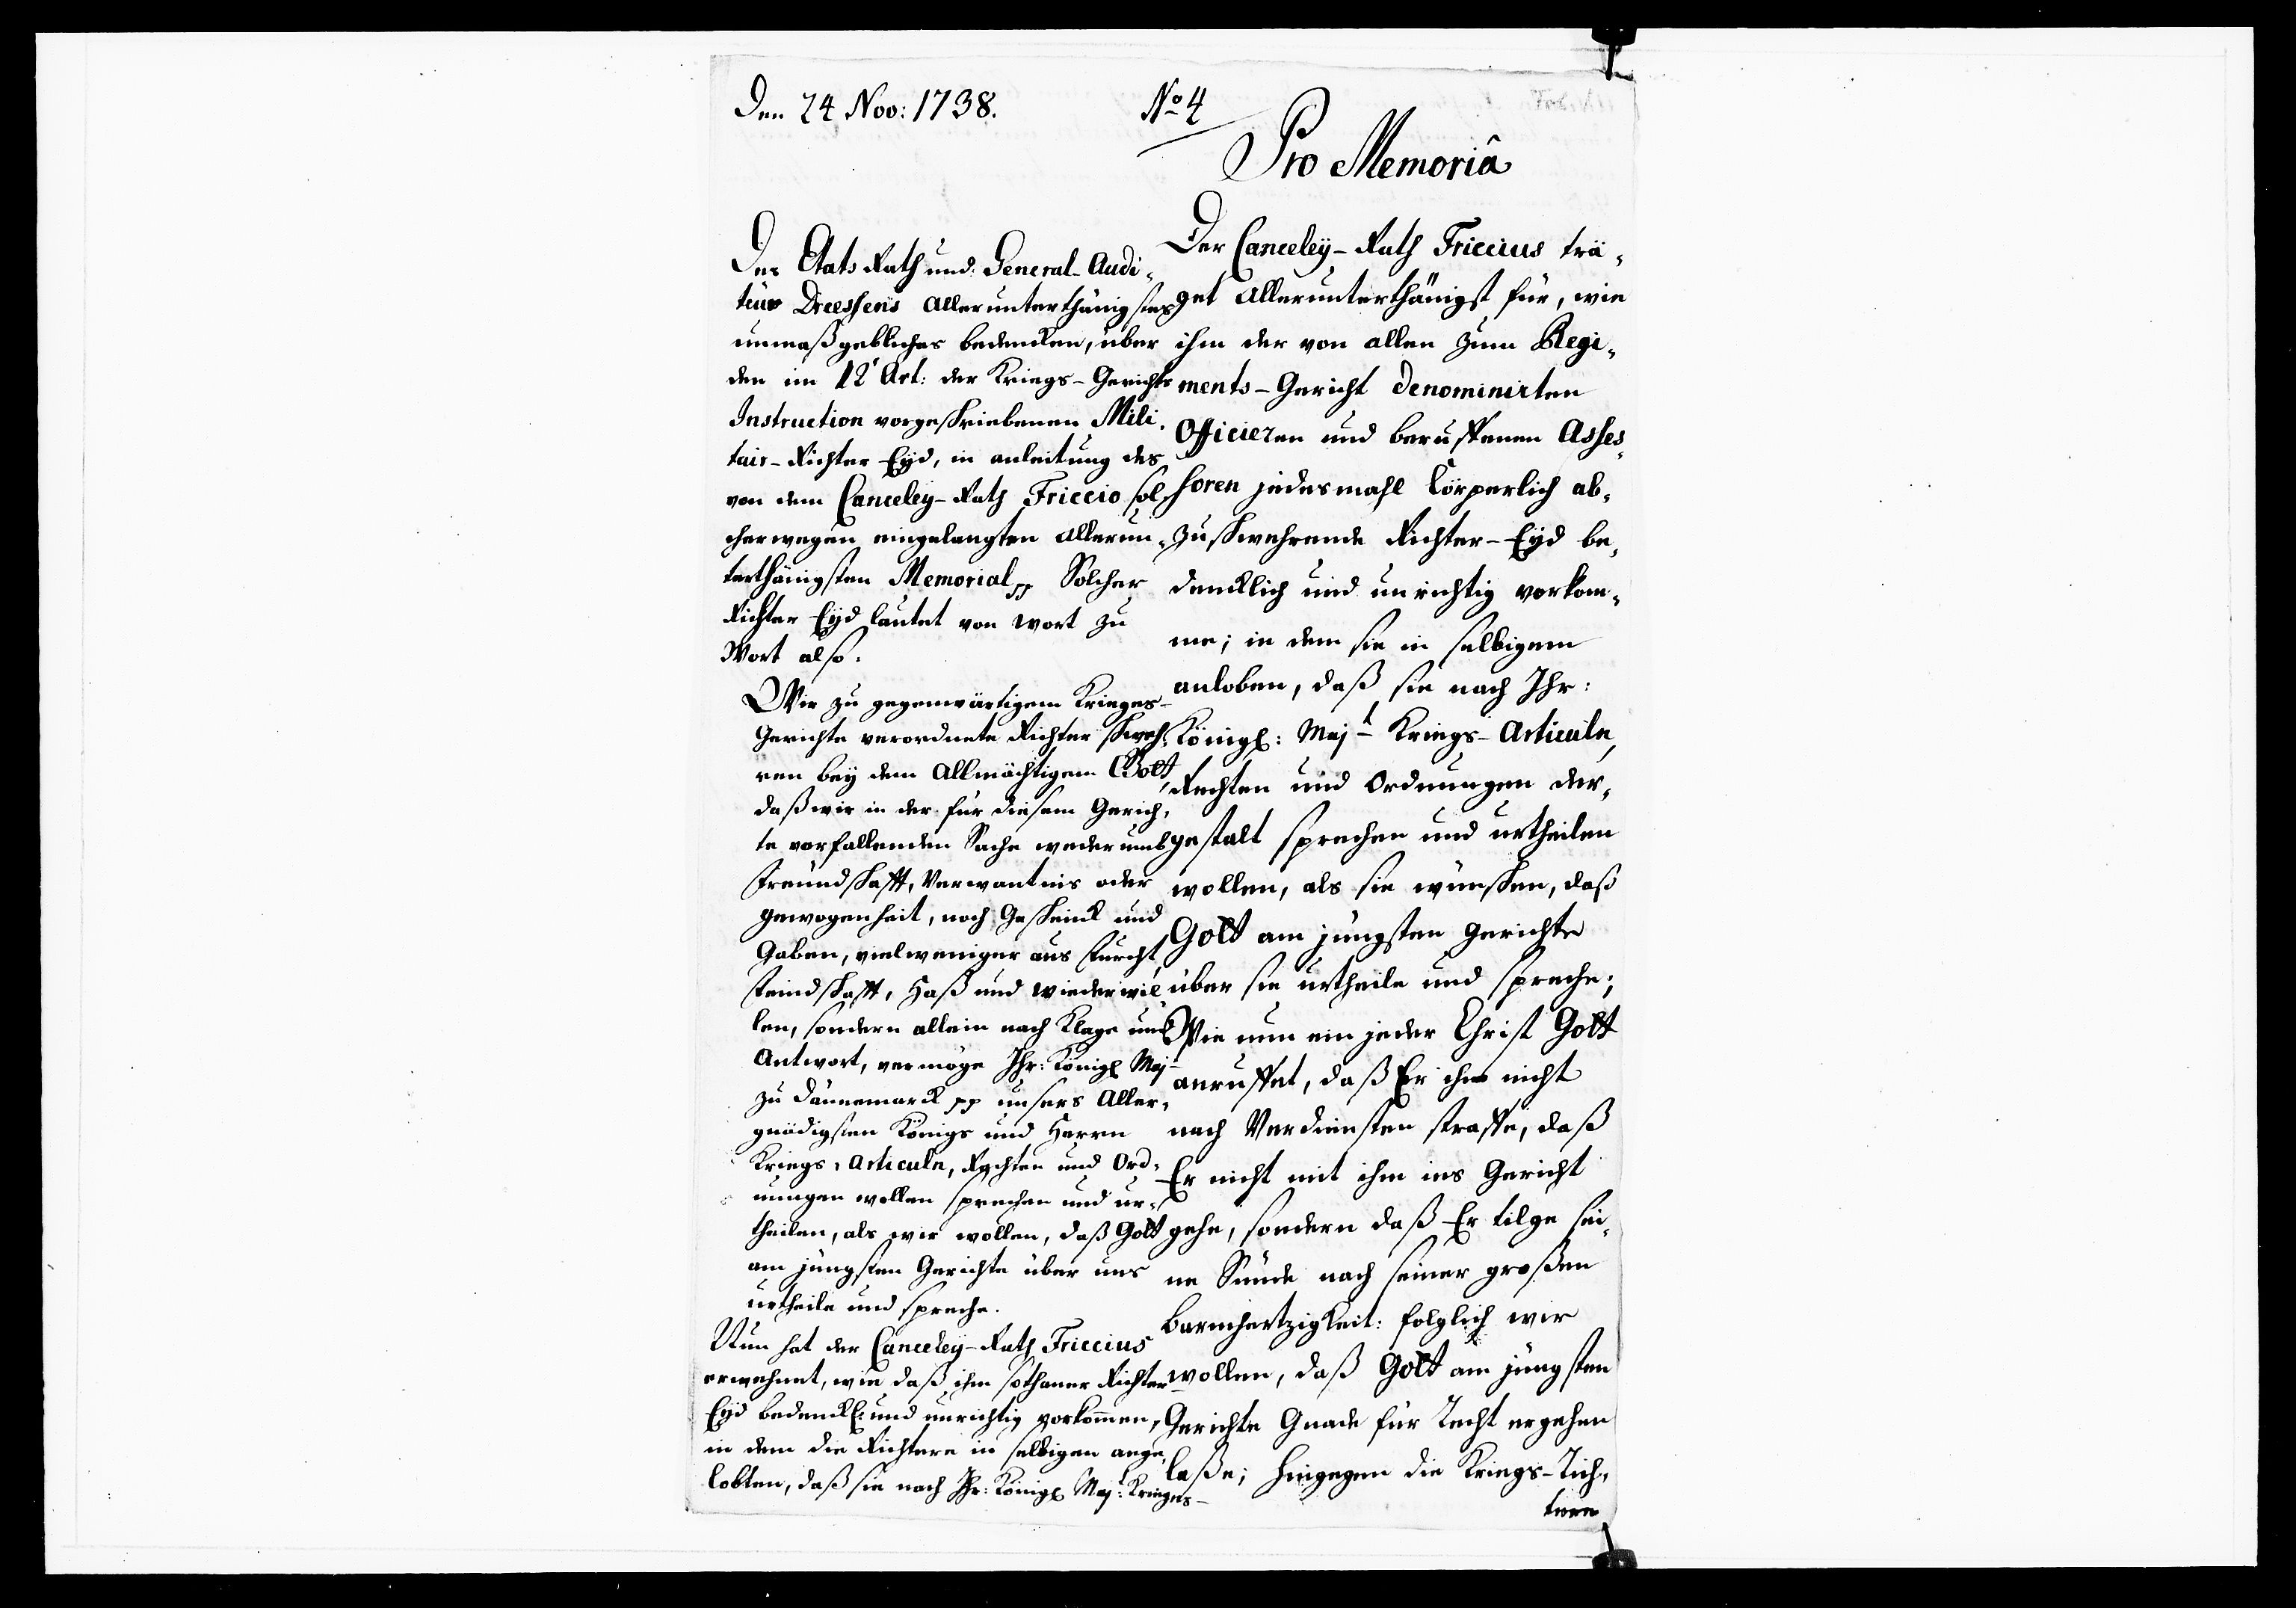 Den 24 Nov: 1738.
No 4
Pro Memoriâ
Des Etats Rath und General-Audi-
teur Dreessens allerunterthänigstes
unmaßgebliches bedencken, über
den im 12t Art: der Kriegs-Gerichts
Instruction vorgeschriebenen Mili-
tair-Richter Eyd, in anleitung des
von dem Canceley-Rath Friccio sol-
cherwegen eingelangten allerun-
terthänigsten Memorial pp Solcher
Richter Eyd lautet von Wort zu
Wort also.
Wir zu gegenwärtigem Krieges-
Gerichte verordnete Richter schweh-
ren bey dem Allmächtigem Gott,
daß wir in der für diesem Gerich-
te vorfallenden Sache weder umb
Freundschafft, Verwantnis oder
gewogenheit, noch Geschenck und
Gaben, vielweniger aus Furcht
Feindschafft, Haß und wiederwil-
len, sondern allein nach Klage und
Antwort, vermöge Ihr: Königl Maj
zu Dännemarck pp unsers Aller-
gnädigsten Königs und Herrn
Kriegs-Articuln, Rechten und Ord-
nungen wollen sprechen und ur-
theilen, als wir wollen, daß Gott
am jüngsten Gerichte über uns
urtheile und spreche.
Nun hat der Canceley-Rath Friccius
erwehnet, wie daß ihm sothaner Richter
Eyd bedenckl: und unrichtig vorkommen,
in dem die Richtere in selbigen ange-
lobten, daß sie nach Ihr: Königl Majt: Krieges-
Der Canceley-Rath Friccius trä-
get allerunterthänigst für, wie
ihm der von allen zum Regi-
ments-Gericht denominirten
Officieren und beruffenen Asses-
soren jedesmahl Cörperlich ab-
zuschwehrende Richter-Eyd be-
dencklich und unrichtig vorkom-
me; in dem sie in selbigem
anloben, daß sie nach Ihr:
Königl: Majt Kriegs-Articuln,
Rechten und Ordnungen der-
gestalt sprechen und urtheilen
wollen, als sie wünschen, daß
Gott am jüngsten Gerichte
über sie urtheile und spreche;
Wie nun ein jeder Christ Gott
anruffet, daß Er ihn nicht
nach Verdiensten straffe, daß
Er nicht mit ihm ins Gericht
gehe, sondern daß Er tilge sei-
ne Sünde nach seiner großen
Barmhertzigkeit: folglich wir
wollen, daß Gott am jüngsten
Gerichte Gnade für Recht ergehen
laße; hingegen die Kriegs-Rich-
tern